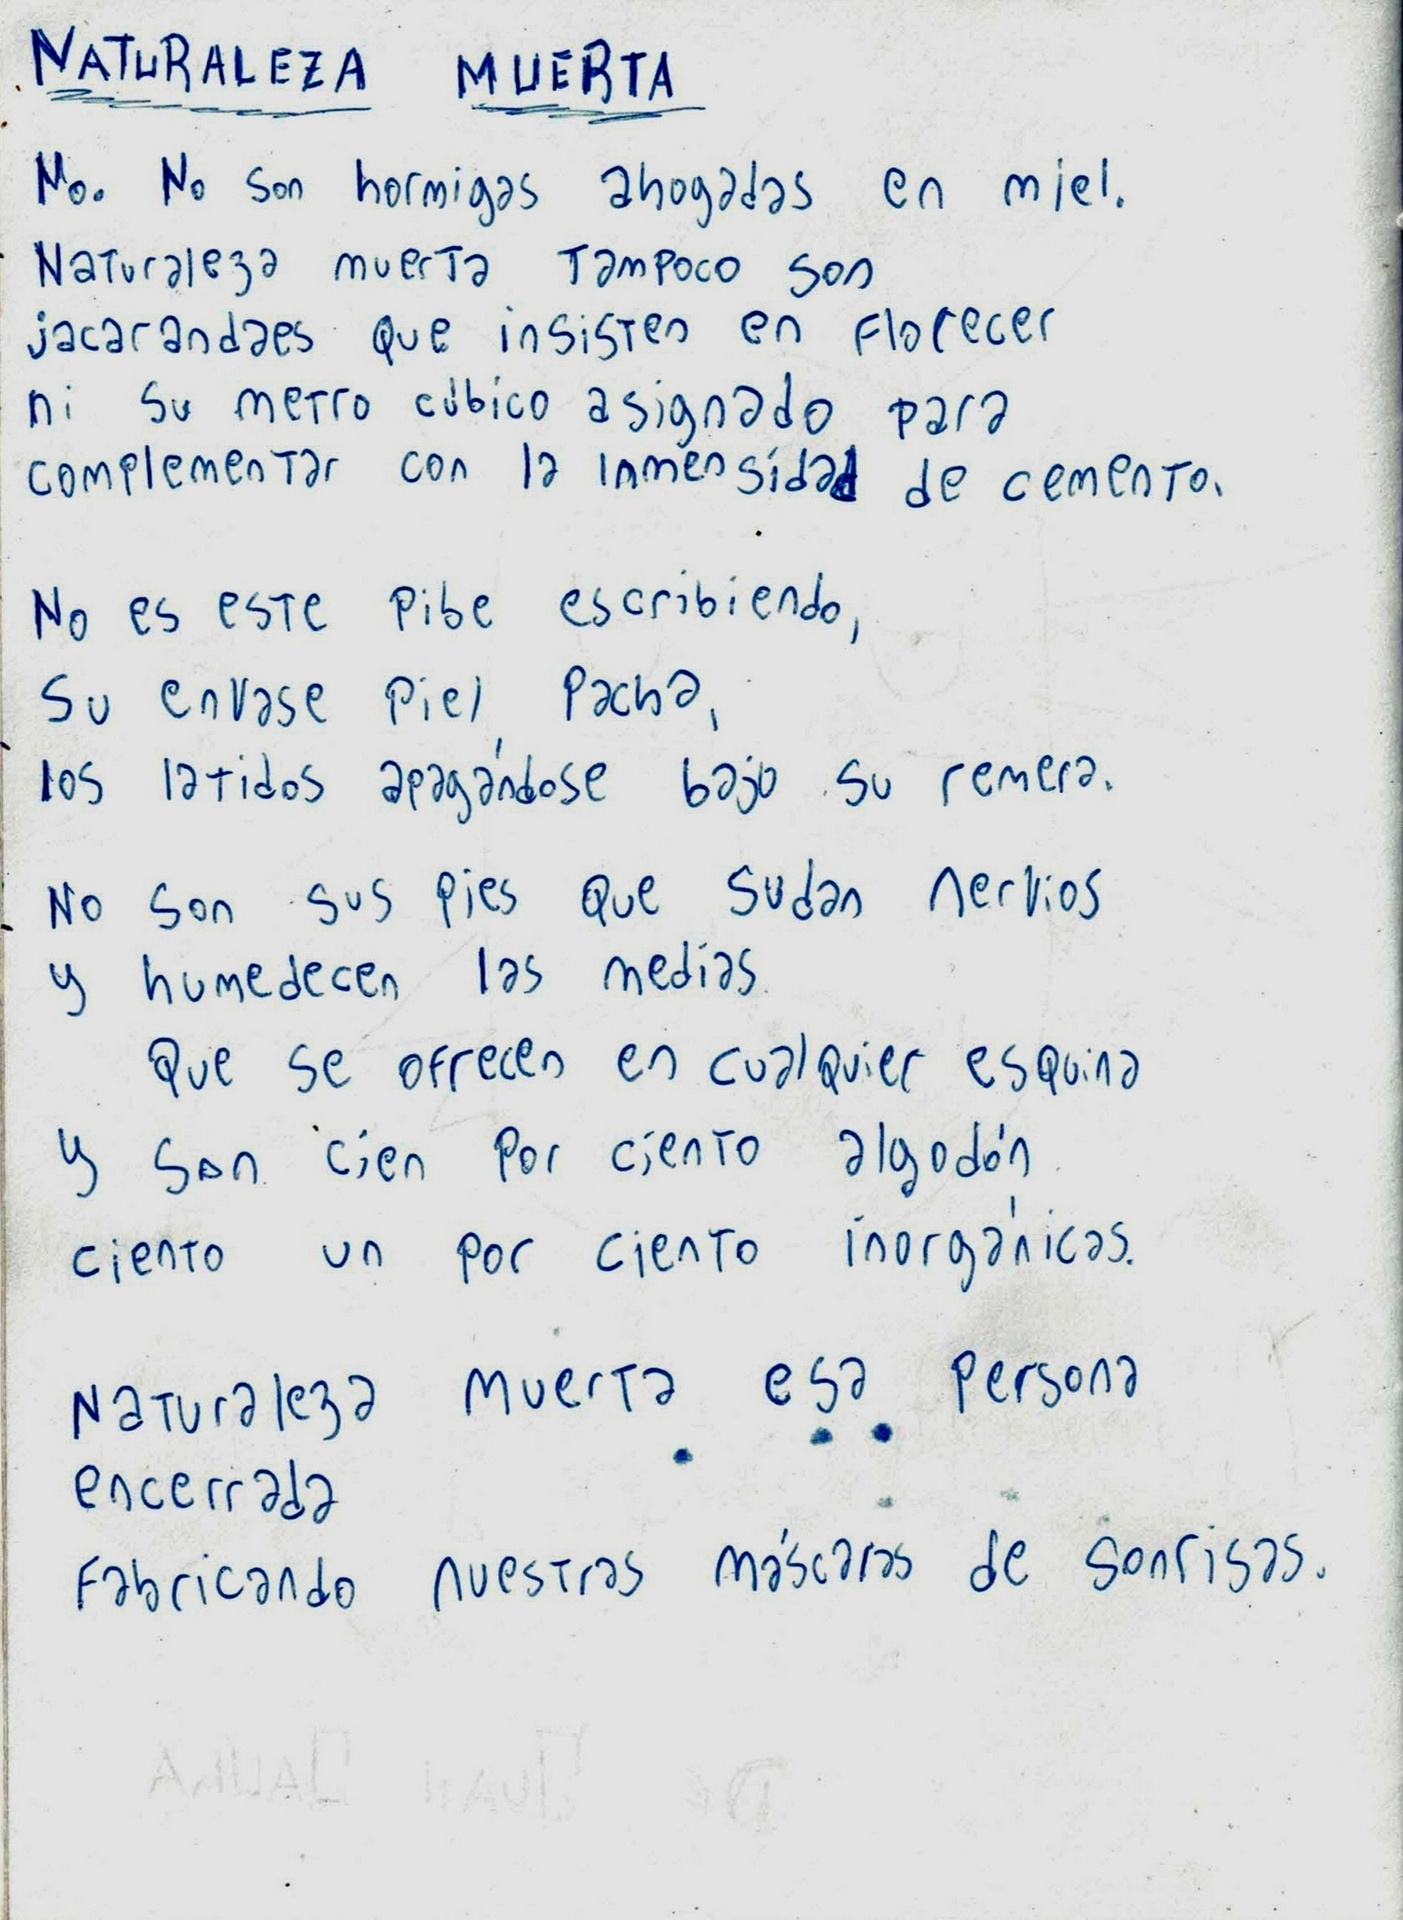 NATURALEZA MUERTA
No. No son hormigas ahogadas en miel.
Naturaleza muerta tampoco son
jacarandaes que insisten en florecer
ni su metro cúbico asignado para
complementar con la inmensidad de cemento.
No es este pibe escribiendo,
su envase piel Pacha,
los latidos apagándose bajo su remera.
No son sus pies que sudan nervios
y humedecen las medias
que se ofrecen en cualquier esquina
y son cien por ciento algodón
ciento un por ciento inorgánicas.
Naturaleza muerta esa persona
encerrada
fabricando nuestras máscaras de sonrisas.